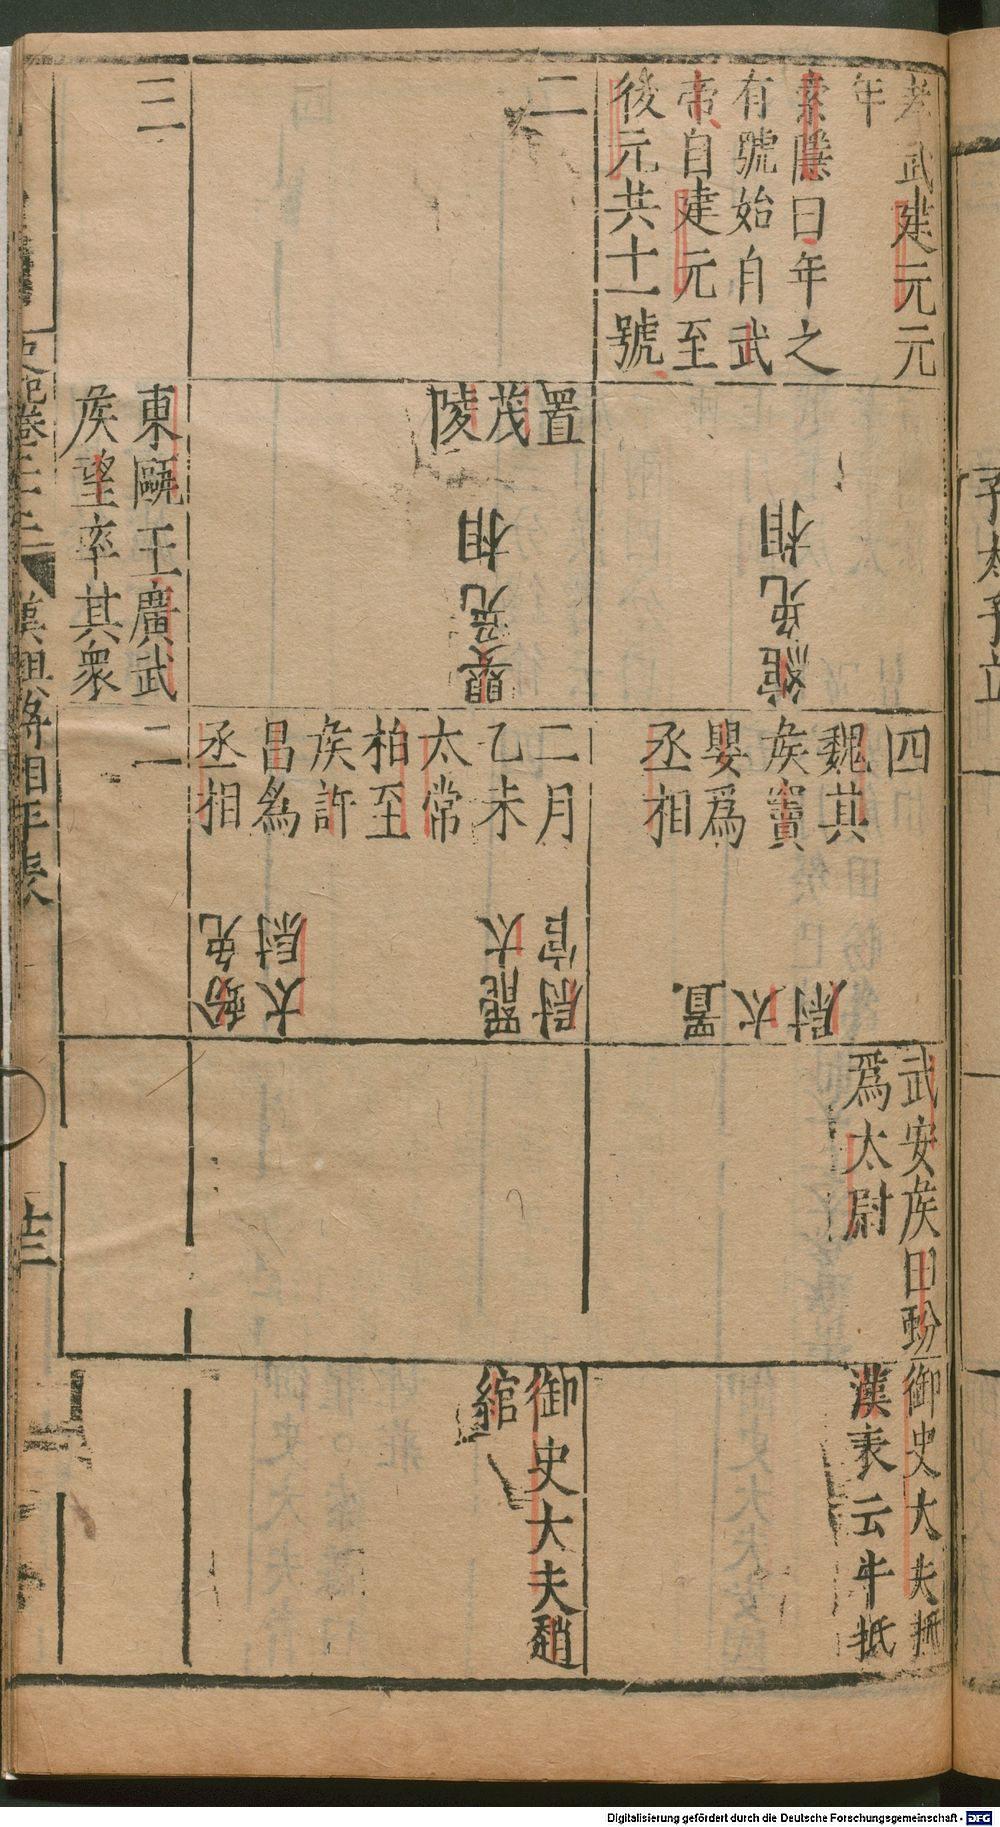 孝武建元元
年
索隱曰年之
有號始自武
帝自建元至
後元共十一號
相
綰免
四
魏其
矦竇
嬰爲
丞相
置
太
尉
武安矦田蚡
爲太尉
御史大夫抵
漢表云牛抵
二
置
茂
陵
相
嬰免
二月
乙未
太常
柏至
矦許
昌爲
丞相
蚡免
太尉
罷太
尉官
御史大夫趙
綰
三
東甌王廣武
矦望率其衆
二
史記卷二十二
漢興將相年表
廿三
Digitalisierung gefördert durch die Deutsche Forschungsgemeinschaft - DFG